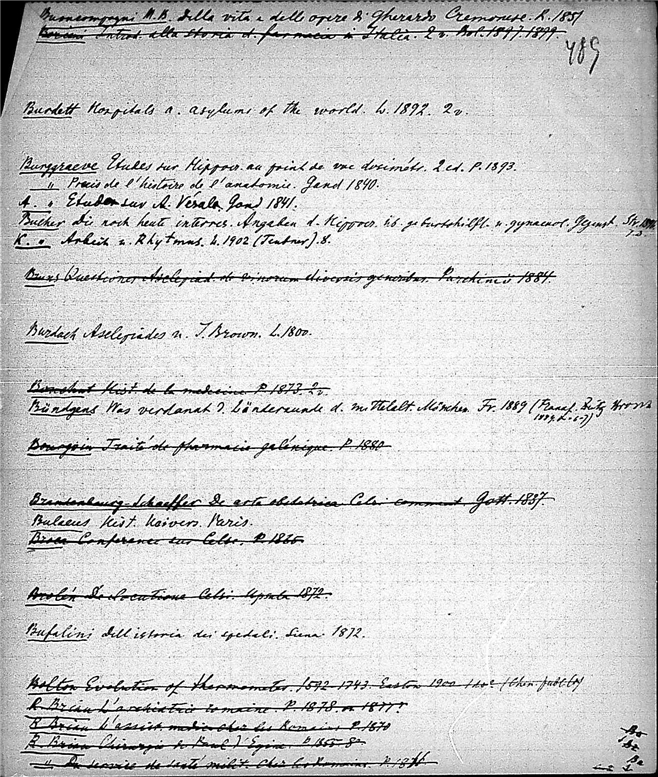 Buoncompagni M.B. della vita e delle opere di Gherardo Cremonese. R. 1851
Introd. alla storia d. farmacia in Italia. 2 v. Bol. 1897. 1899.
489
Burdett Hospitals a. asylums of the world. L. 1892. 2 v.
Burggraeve Etudes sur Hippocr. au point de vue dosimétr. 2 ed. P. 1893.
" Précis de l'histoire de l'anatomie. Gand 1840.
A. " Etudes sur A. Vesale. Gand 1841.
Bücher Die noch heute interess. Angaben d. Hippocr. üb. geburtshilfl. u. gynaecol. Gegenst.
K. " Arbeit u. Rhytmus. L. 1902 (Teubner). 8.
Bruns Quaestiones Asclepiad. de vinorum diversis generibus. Parchimii 1884.
Burdach Asclepiades u. J. Brown. L. 1800.
Bouchut Hist. de la medecine P. 1873. 2 v.
Bündgens Was verdankt d. Länderkunde d. mittelalt. Mönchen. Fr. 1889
Bourgoin Traité de pharmacie galénique. P. 1880
Schaeffer De arte obstetricia Celsi comment. Gott. 1837.
Bulaeus Hist. Univers. Paris.
Broca Conference sur Celse. P.
Brolén De elocutione Celsi. Upsala 1872.
Bufalini dell'istoria dei spedali. Siena 1872.
Bolton Evolution of thermometer. 1592-1743. Easton 1900
R. Briau L'archiatrie romaine. P. 1878
R. Briau L'assist. medic. chez les Romains P. 1870
R. Briau Chirurgie de Paul d'Egine. P.
" Du service de santé milit. chez les Romains. P. 1866